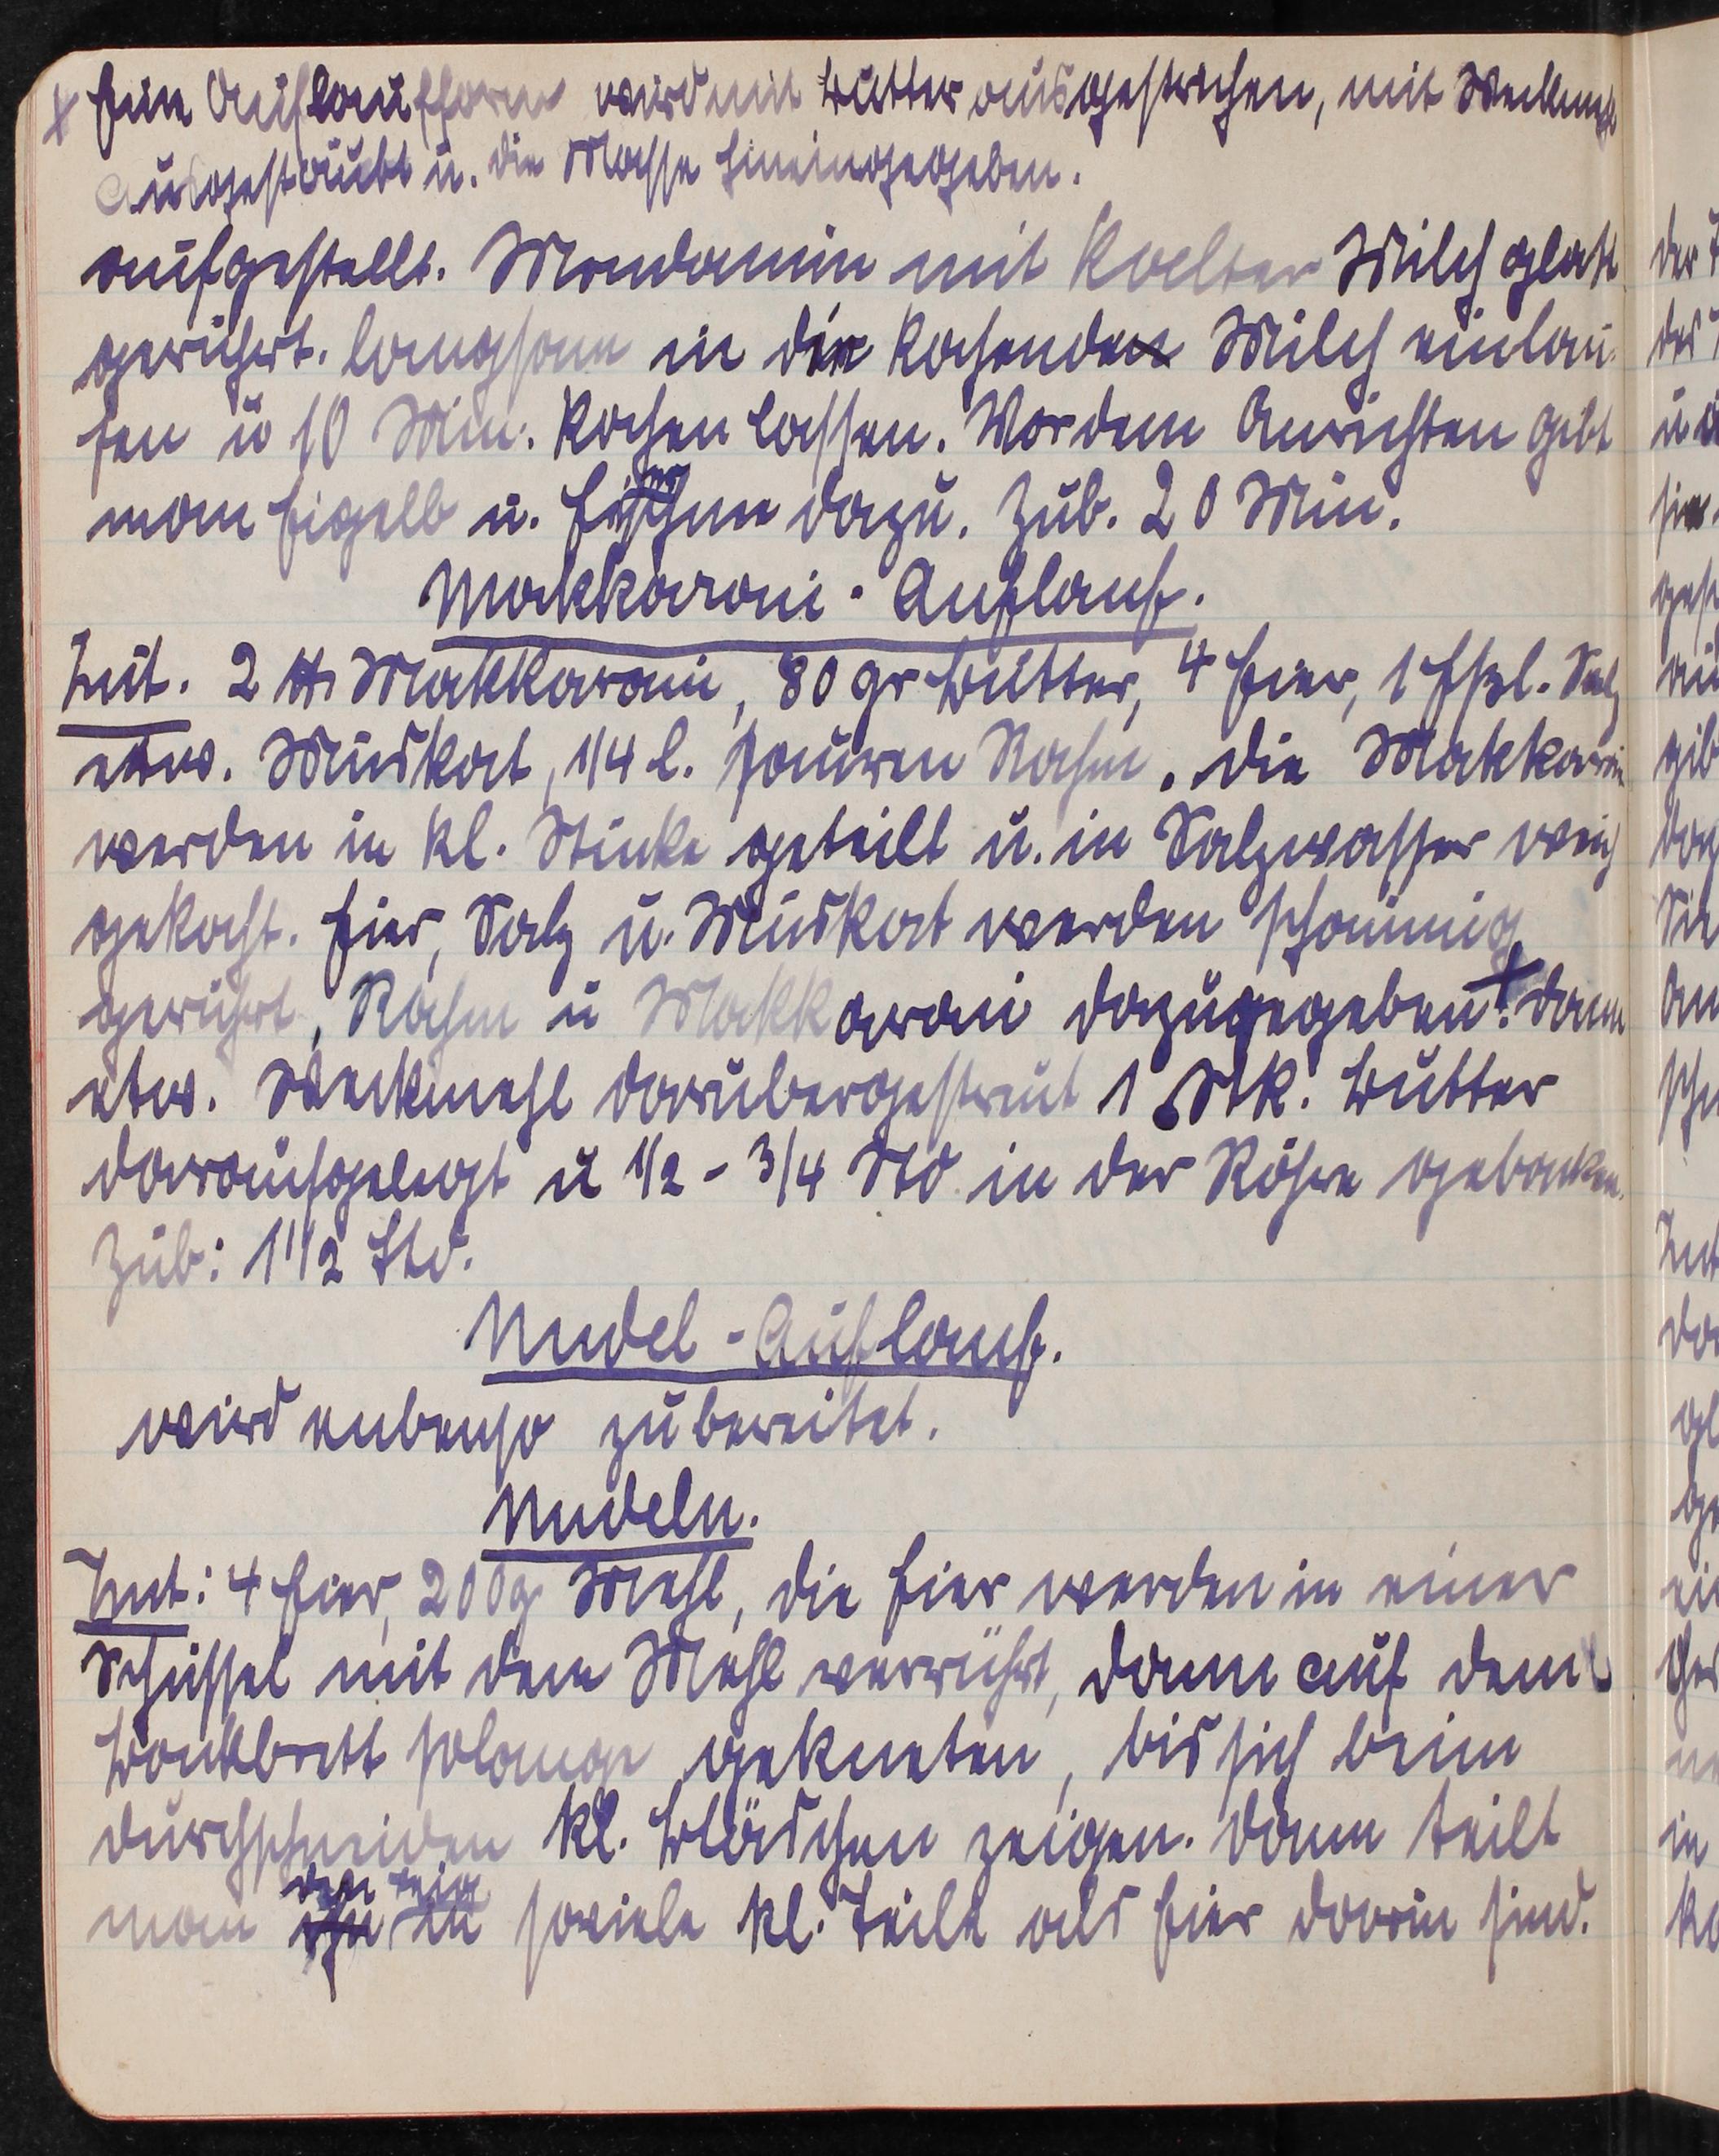 x Eine Auflaufform wird mit Butter ausgestrichen, mit Weckmehl
ausgestäubt u. die Masse hineingegeben.
aufgestellt. Mondamin mit kalter Milch glatt
gerührt. langsam in die kochende Milch einlau-
fen u 10 Min. kochen lassen. Vor dem Anrichten gibt
man Eigelb u. Eischnee dazu. Zub. 20 Min.
Makkaroni-Auflauf.
Zut. 2 ℔ Makkaroni, 80 gr Butter, 4 Eier, 1 Essl. Salz
etw. Muskat, 1/4 l. sauren Rahm. Die Makkaroni
werden in kl. Stücke geteilt u. in Salzwasser weich
gekocht. Eier, Salz u. Muskat werden schaumig
gerührt, Rahm u Makkaroni dazugegeben. x Dann
etw. Weckmehl darübergestreut 1 Stk. Butter
daraufgelegt u 1/2 - 3/4 Std in der Röhre gebacken.
Zub: 1 1/2 Std.
Nudel-Auflauf.
wird eubenso zubereitet.
Nudeln.
Zut: 4 Eier, 200g Mehl, die Eier werden in einer
Schüssel mit dem Mehl verrührt, dann auf dem
Backbrett solange gekneten, bis sich beim
durchschneiden kl. Bläschen zeigen. Dann teilt
man den Teig in soviele kl. Teile als Eier darin sind.